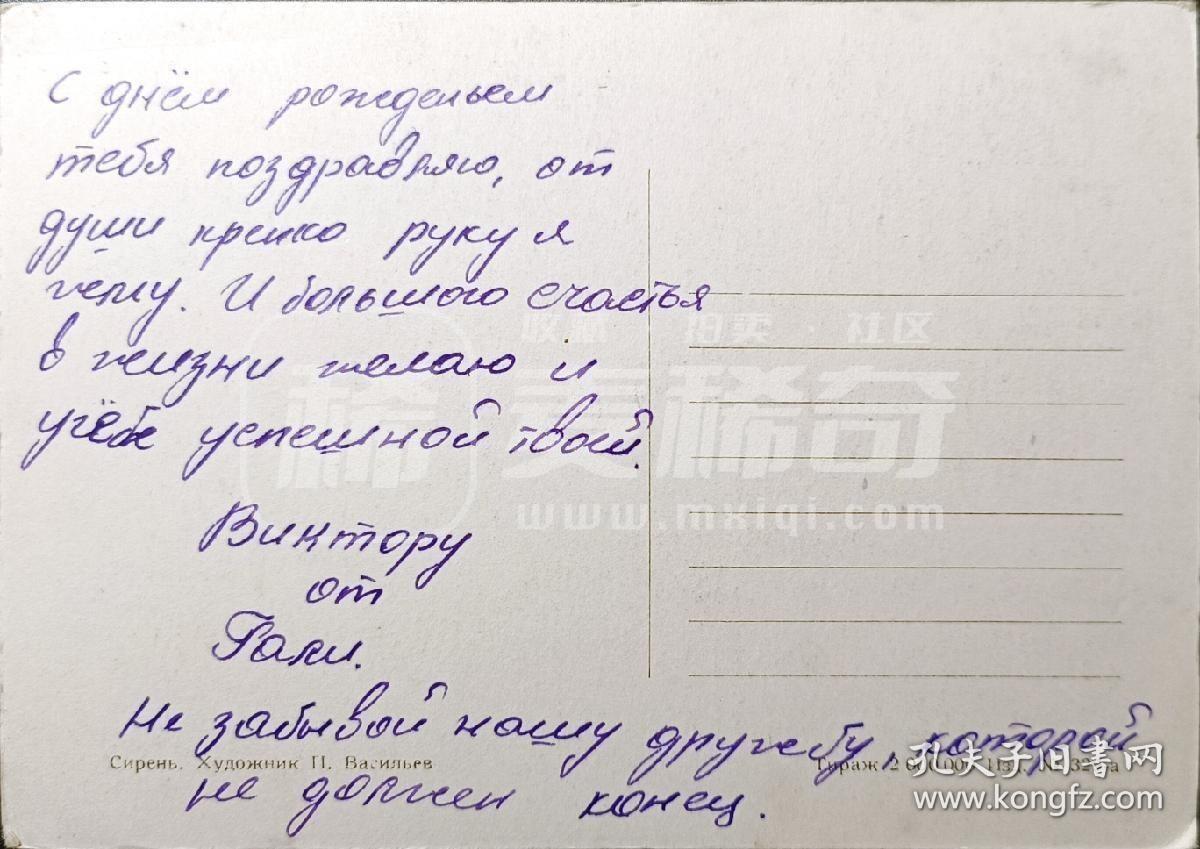 С днём рожденьем
тебя поздравляю, от
души крепко руку я
жему. И большого счастья
в жизни желаю и
учёбе успешной твоей.
Виктору
от
Гали.
Не забывай нашу дружбу, которой
не должен конец.
Сирень. Художник П. Васильев
Тираж
收藏 · 拍卖 · 社区
稀 麦稀奇
www.mxiqi.com
孔夫子旧书网
www.kongfz.com